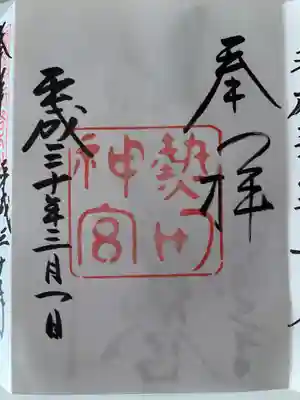 奉拝
熱田
神宮
平成三十年三月一日